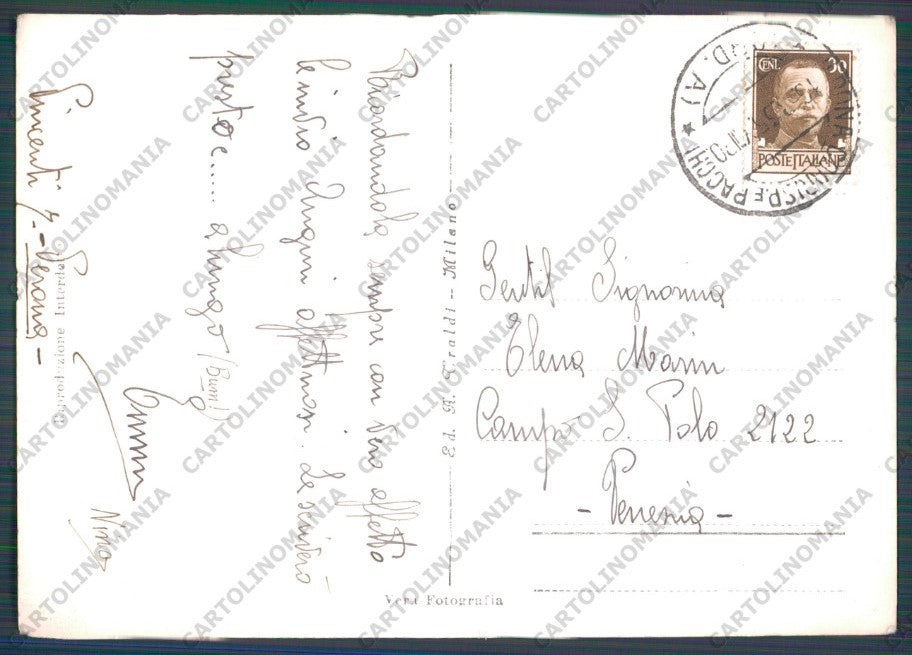 Ricordandola sempre con vero affetto
le invio auguri affettuosi. Le scriverò
presto e..... a lungo (Bum!)
Nino
Vincenti 4. - Verona -
Riproduzione Interdetta
Ed. A. Traldi - Milano
Vera Fotografia
CENT. 30
POSTE ITALIANE
PACCHI
Gentil Signorina
Elena Marin
Campo S. Polo 2122
- Venezia -
CARTOLINOMANIA